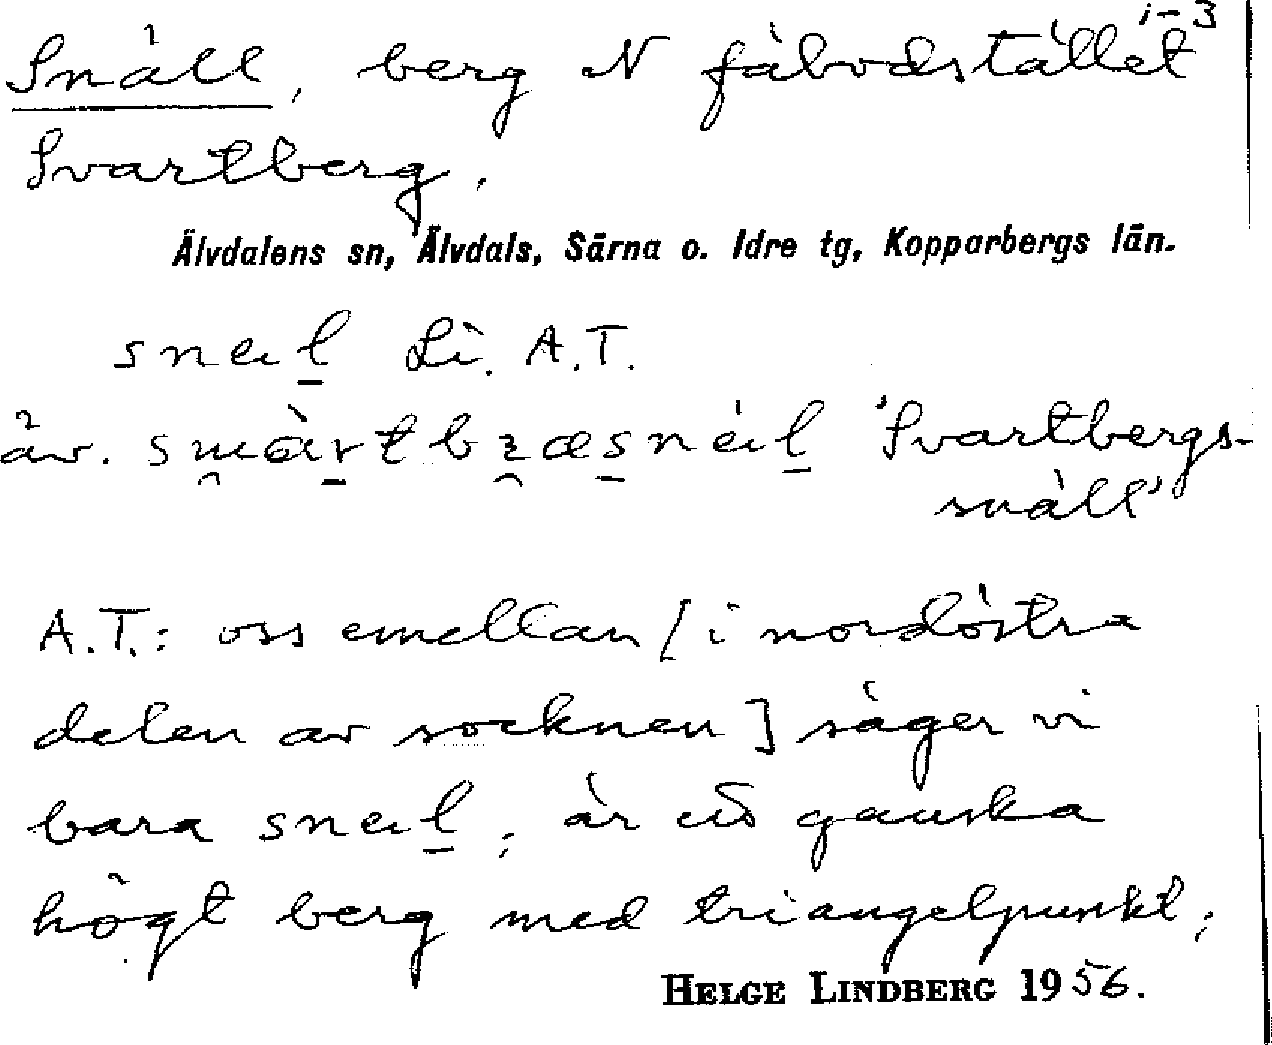 1-3
Snäll, berg N fäbodstället
Svartberg.
Älvdalens sn, Älvdals, Särna o. Idre tg, Kopparbergs län.
sneil Li. A.T.
äv. 'Svartbergs-
snäll'
A.T.: oss emellan [i nordöstra
delen av socknen] säger vi
bara sneil; är ett ganska
högt berg med triangelpunkt;
HELGE LINDBERG 1956.